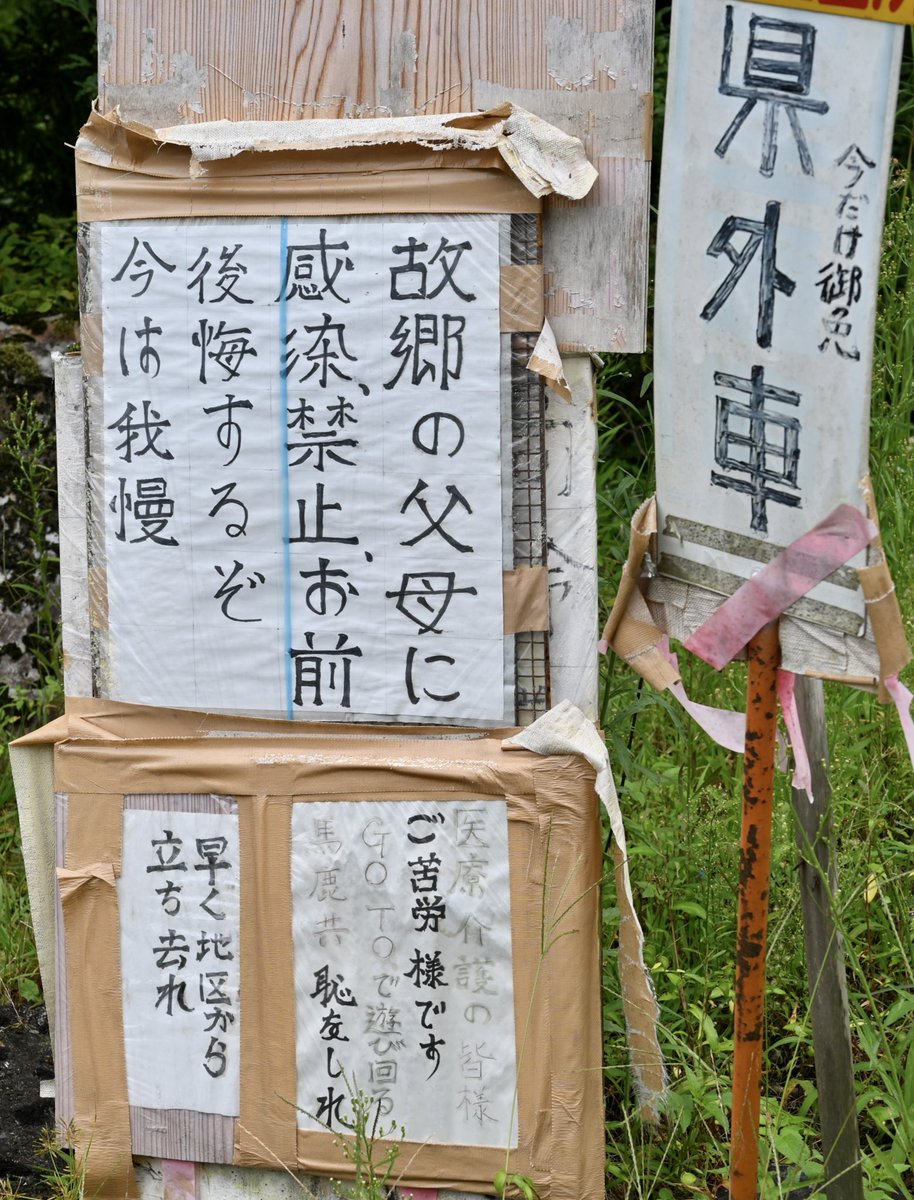 県外車
今だけ御免
故郷の父母に
感染、禁止、お前
後悔するぞ
今は我慢
医療介護の皆様
ご苦労様です
GO TOで遊び回る
馬鹿共 恥をしれ
早く地区から
立ち去れ